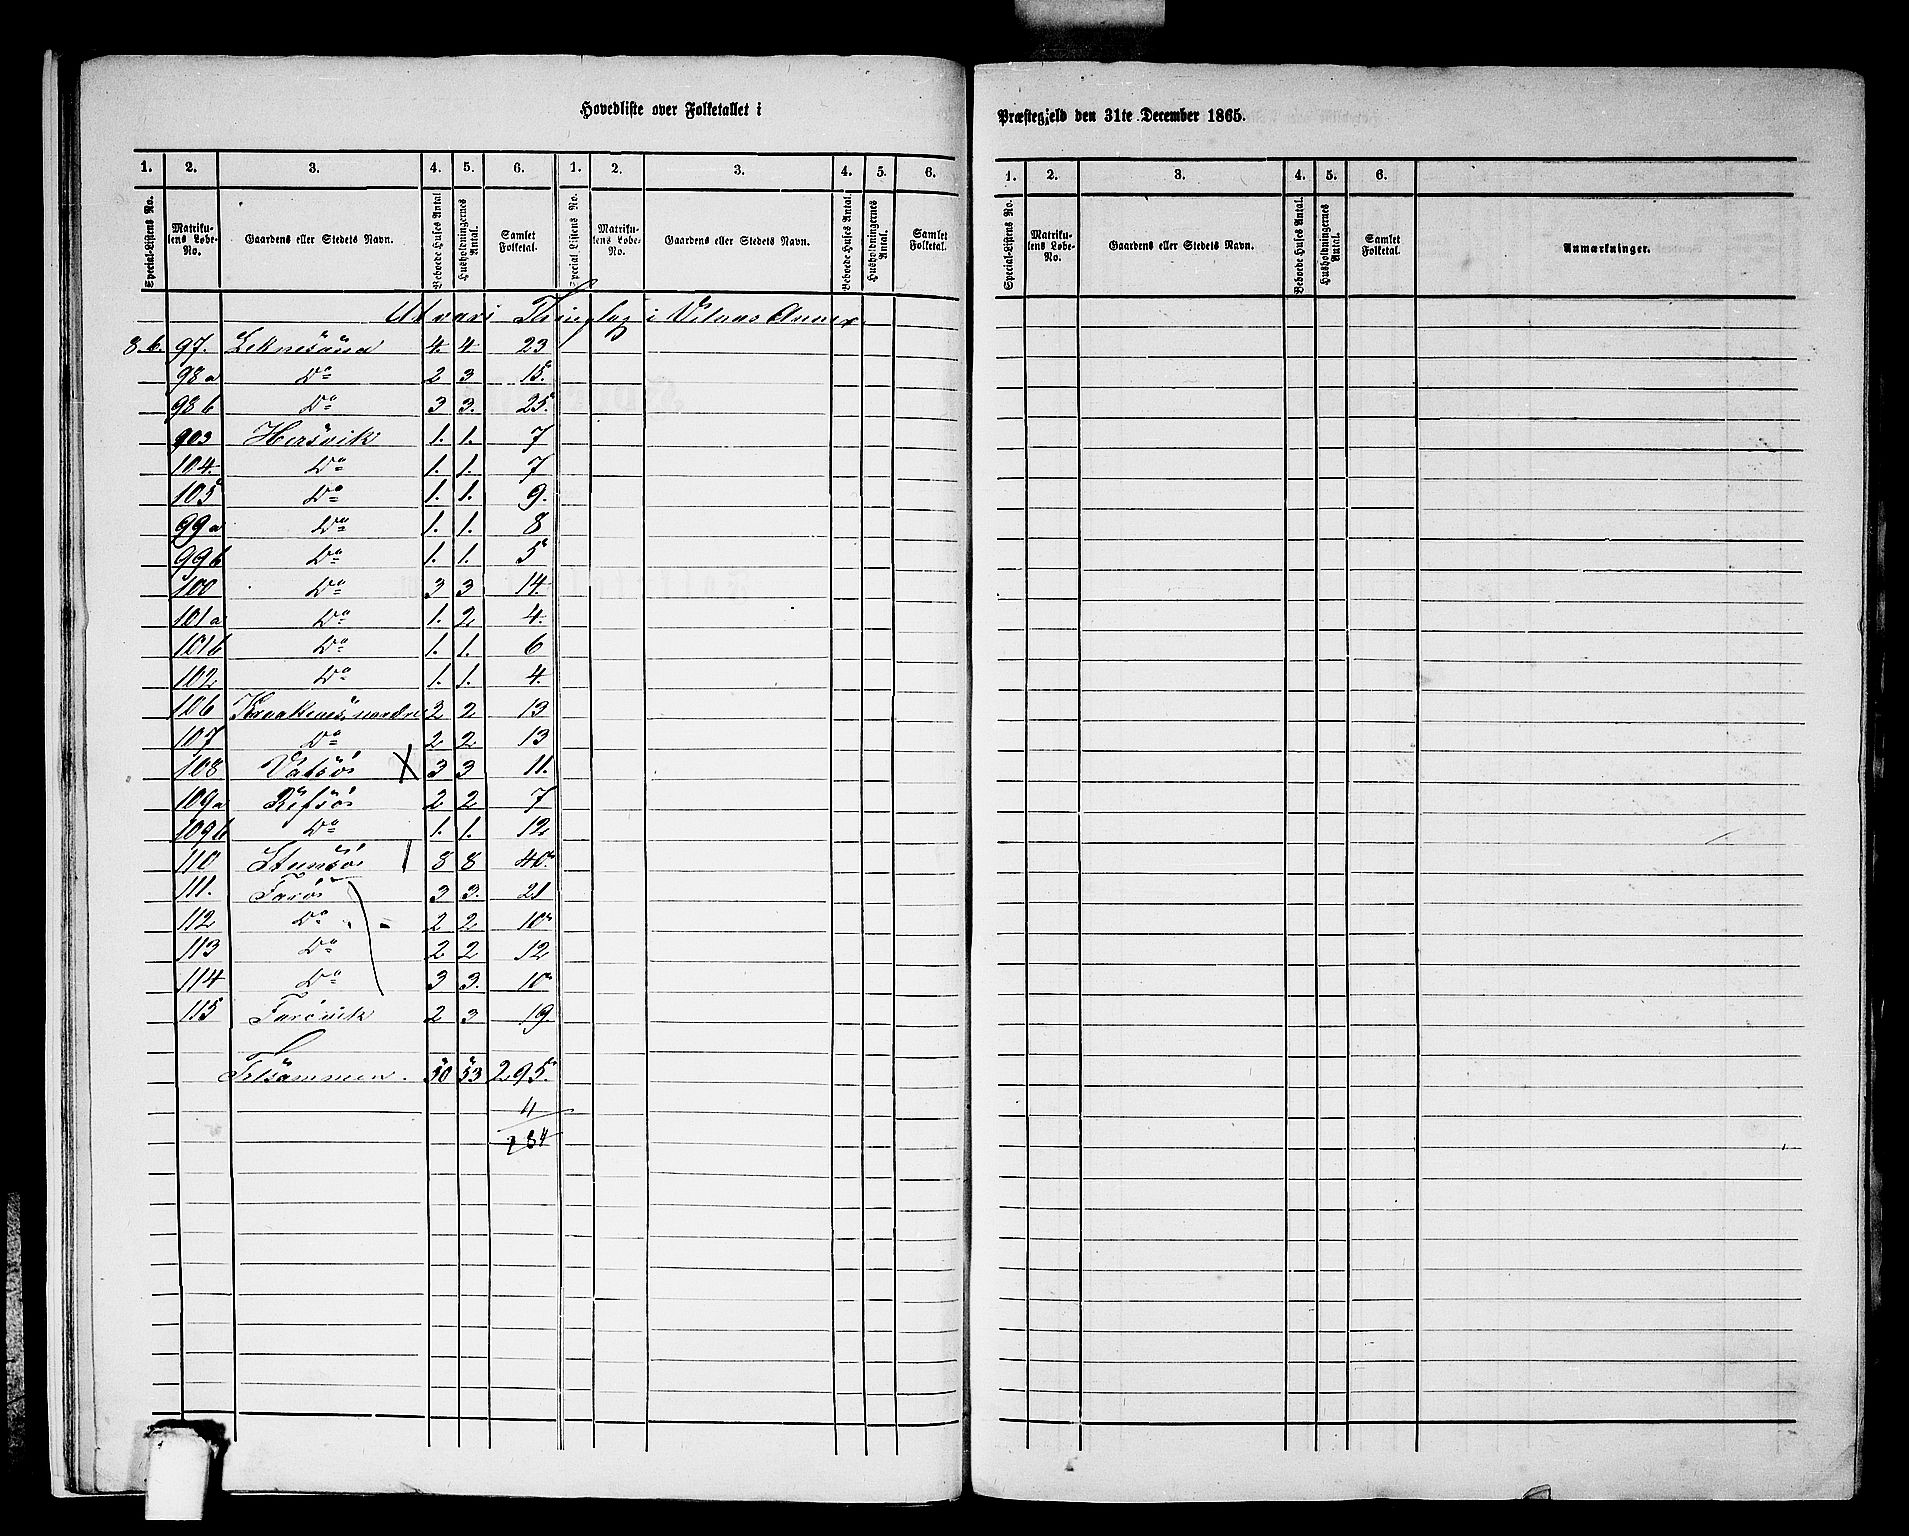 Hovedliste over Folketallet i
Præstegjeld den 31te December 1865.
1. 2. 3. 4. 5. 6. 1. 2. 3. 4. 5. 6.
1. 2. 3. 4. 5. 6.
Special-Listens No. Matrikulens Lobe-No. Gaardens eller Stedets Navn. Beboede Huses Antal Husholdningernes Antal. Samlet Folketal. Special-Listens No. Matrikulens Lobe-No. Gaardens eller Stedets Navn. Beboede Huses Antal. Husholdningernes Antal. Samlet Folketal.
Special-Listens No. Matrikulens Lobe-No. Gaardens eller Stedets Navn. Beboede Huses Antal. Husholdningernes Antal. Samlet Folketal. Anmærkninger.
Utvær Thinglag i Annex.
8.6. 97. Leknesund 4. 4. 23
98 a Do 2 3 15.
98 b Do 3 3. 25.
903 Hersvik 1. 1. 7
104. Do 1. 1. 7
105 Do 1. 1. 9.
99 a Do 1. 1. 8
99 b Do 1. 1. 5
100 Do 3 3 14.
101 a Do 1. 2 4.
101 b Do 1. 1. 6
102 Do 1. 1. 4.
106 Kraakenes, nordre 2 2 13
107 Do 2 2. 13
108 Vatsøi X 3 3 11.
109 a Refsøi 2 2 7
109 b Do 1. 1. 12
110 Steinsøi 8 8 40.
111. Farøi 3 3. 21
112 Do 2 2 10
113 Do 2 2 12
114 Do 3 3. 10
115 Farøvik 2 3 19.
Tilsammen. 50 53 295.
11
284